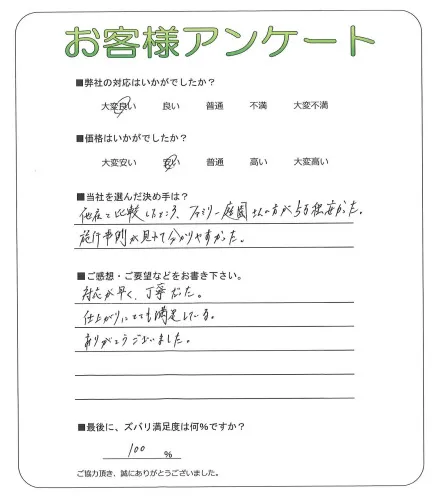 お客様アンケート
■弊社の対応はいかがでしたか？
大変良い 良い 普通 不満 大変不満
■価格はいかがでしたか？
大変安い 安い 普通 高い 大変高い
■当社を選んだ決め手は？
他店と比較したところ、ファミリー庭園さんの方が5万程安かった。
施行事例が見れて分かりやすかった。
■ご感想・ご要望などをお書き下さい。
対応が早く、丁寧だった。
仕上がりにとても満足している。
ありがとうございました。
■最後に、ズバリ満足度は何%ですか？
100 %
ご協力頂き、誠にありがとうございました。